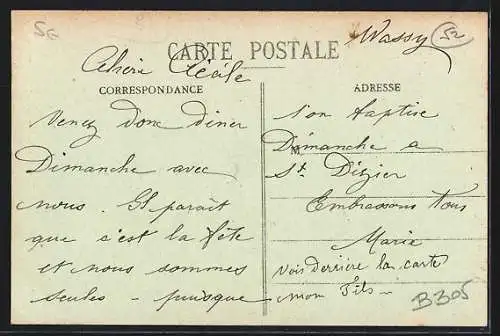 52
Wassy
52
CARTE POSTALE
Chère Cécile
CORRESPONDANCE
Venez donc diner
Dimanche avec
nous. Il parait
que c'est la fête
et nous sommes
seules - puisque
ADRESSE
l'on baptise
M
Dimanche a
St. Dizier
Embrassons Tous
Marie
Vois derrière la carte
mon Fils-
B305